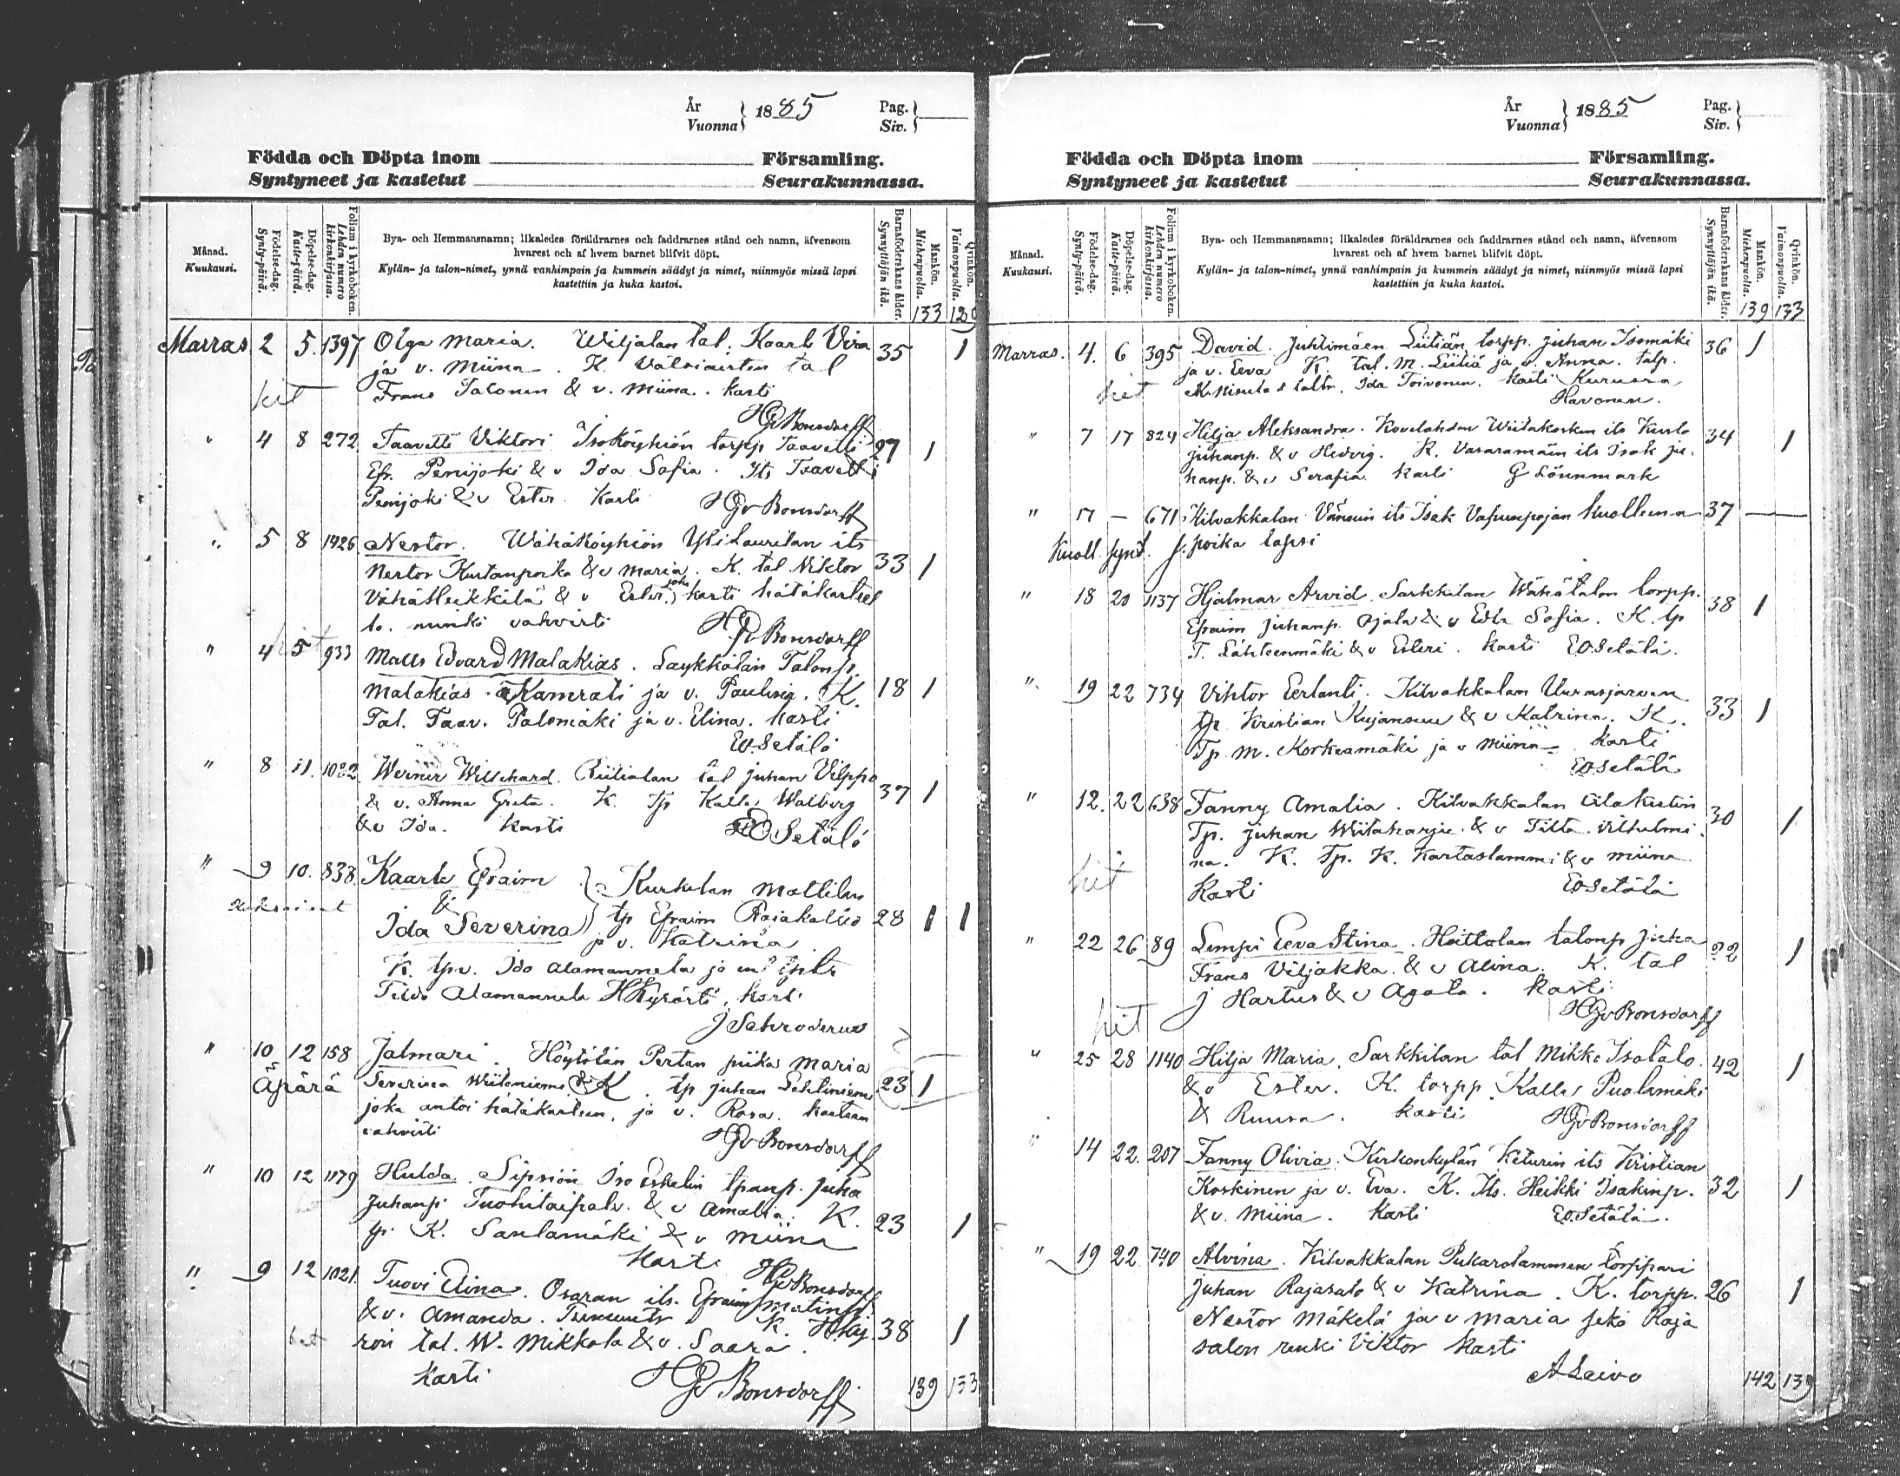 År
Vuonna } 1885 Pag.
Siv. }
Födda och Döpta inom Församling.
Syntyneet ja kastetut Seurakunnassa.
Månad.
Kuukausi.
Födelse-dag.
Synty-päivä.
Döpelse-dag.
Kaste-päivä.
Folium i kyrkoboken.
Lehden numero kirkonkirjassa.
Bya- och Hemmansnamn; likaledes föräldrarnes och faddrarnes stånd och namn, äfvensom
hvarest och af hvem barnet blifvit döpt.
Kylän- ja talon-nimet, ynnä vanhimpain ja kummein säädyt ja nimet, niinmyös missä lapsi
kastettiin ja kuka kastoi.
Barnaföderskans ålder.
Synnyttäjän ikä.
Mankön.
Miehenpuolia.
Qvinkön.
Vaimonpuolia.
133
Marras 2 5. 1397 Olga Maria. Wiljalan tal. Kaarl Vira 35 1
ja v. Miina. K.
Frans Salonen & v. Miina. kasti
HGvBonsdorff
" 4 8 272 Taavetti Viktori Isoköyhiön torpp Taavetti 27 1
Efr. Penijoki & v Ida Sofia. Its Taavetti
Penijoki & v Ester. Kasti HGvBonsdorff
" 5 8 1426 Nestor. Wähäköyhiön Ylilauritan its 33 1
Nestor Kustanpoika & v Maria. K. tal. Viktor
VähäHeikkilä & v Ester, joka kasti hätäkasteel
la. vahvisti HGvBonsdorff
" 4 5 933 Matts Edvard Malakias. Laykkälän Talonp. 18 1
Malakias Kamrati ja v. Paulina. K.
Tal. Taav. Palomäki ja v. Elina. kasti
EO.Setälä
" 8 11. 1022 Werner Willehard. Riitialan tal juhan Vilppo 37 1
& v. Anna Greta. K. tp Kalle Walberg
& v Ida. Kasti EOSetälä
" 9 10. 838 Kaarle Efraim } Kurkelan Mattilan
kaksoiset & 28 1 1
Ida Severina } tp Efraim Rajakallio
ja v. Katrina
K. tp v. Ida Alamannela ja
Tilda Alamannela HKyrösti, kasti
J Schroderus
" 10 12 158 Jalmari. Höytölän Pertan piika Maria
äpärä Severina K. tp juhan Lehtiniemi 23 1
joka antoi hätäkasteen, ja v. Rosa. kasteen
vahvisti HGvBonsdorff
" 10 12 1179 Hulda. Sipsiön Iso Eskelin tpanp. Juha
Juhanp. Tuohitaipale & v Amalia. K. 23 1
tp. K. Saulamäki & v Miina
Kasti HGvBonsdorff
" 9 12 1021. Tuovi Elina. Osaran its. Efraim Matinp.
& v. Amanda. K. Hky 38 1
rön tal. W. Mikkola & v. Saara.
Kasti HGvBonsdorff 139 133
År
Vuonna } 1885 Pag.
Siv. }
Födda och Döpta inom Församling.
Syntyneet ja kastetut Seurakunnassa.
Månad.
Kuukausi.
Födelse-dag.
Synty-päivä.
Döpelse-dag.
Kaste-päivä.
Folium i kyrkoboken.
Lehden numero kirkonkirjassa.
Bya- och Hemmansnamn; likaledes föräldrarnes och faddrarnes stånd och namn, äfvensom
hvarest och af hvem barnet blifvit döpt.
Kylän- ja talon-nimet, ynnä vanhimpain ja kummein säädyt ja nimet, niinmyös missä lapsi
kastettiin ja kuka kastoi.
Barnaföderskans ålder.
Synnyttäjän ikä.
Mankön.
Miehenpuolia.
Qvinkön.
Vaimonpuolia.
139 133
Marras. 4. 6 395 David. Juhtimäen Liitiän torpp. juhan Isomäki 36 1
ja v. Eeva K. tal. M. Liitiä ja v. Anna. talp.
Ida Toivonen. kasti Kurussa
Havonen.
" 7 17 824 Hilja Aleksandra. Kovelahden Wiitakosken its Kusto 34 1
juhanp. & v Hedvig. K. Vasaramäen its Isak ju-
hanp. & v Serafia. kasti G Lönnmark
" 17 — 671 Kilvakkalan its Isak Vapunpojan kuolleena 37 —
Kuoll. synt. poika lapsi
" 18 20 1137 Hjalmar Arvid. Sarkkilan Wähätalon torpp. 38 1
Efraim Juhanp. Ojala & v Edla Sofia. K. tp
T. Lähteenmäki & v Esteri. kasti EOSetälä.
" 19 22 734 Viktor Eerlanti. Kilvakkalan Uurasjärven 33 1
tp Kristian Kujansuu & v Katrina. K.
Tp. M. Korkeamäki ja v Miina kasti
EOSetälä
" 12. 22 638 Fanny Amalia. Kilvakkalan 30 1
Tp. juhan Wiitaharju & v Tilta Vilhelmi-
na. K. Tp. K. Kartaslammi & v Miina
Kasti EOSetälä
" 22 26 89 Lempi Eeva Stina. Heittolan talonp juha 22 1
Frans Viljakka. & v Alina. K. tal
J Hartus & v Agata. kasti
HGvBonsdorff
" 25 28 1140 Hilja Maria. Sarkkilan tal Mikko Isotalo. 42 1
& v Ester. K. torpp. Kalle Puolamäki
& Ruusa. kasti HGvBonsdorff
" 14 22. 207 Fanny Olivia. Kirkonkylän Keturin its Kristian
Koskinen ja v. Eva. K. Its. Heikki Isakinp. 32 1
& v. Miina. kasti EO.Setälä.
" 19 22 740 Alvina. Kilvakkalan Pukarolammen torppari
Juhan Rajasalo & v Katrina. K. torpp. 26 1
Nestor Mäkelä ja v Maria sekä Raja
salon renki Viktor kasti
ALeivo 142 139